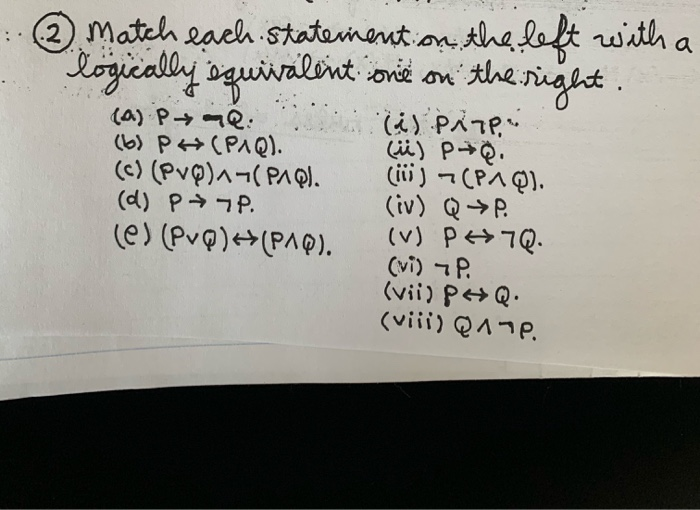 (2) Match each statement on the left with a
logically equivalent one on the right.
(a) P → ¬Q.
(b) P ↔ (P∧Q).
(c) (P∨Q)∧¬(P∧Q).
(d) P → ¬P.
(e) (P∨Q)↔(P∧Q).
(i) P∧¬P.
(ii) P→Q.
(iii) ¬(P∧Q).
(iv) Q→P.
(v) P↔¬Q.
(vi) ¬P.
(vii) P↔Q.
(viii) Q∧¬P.